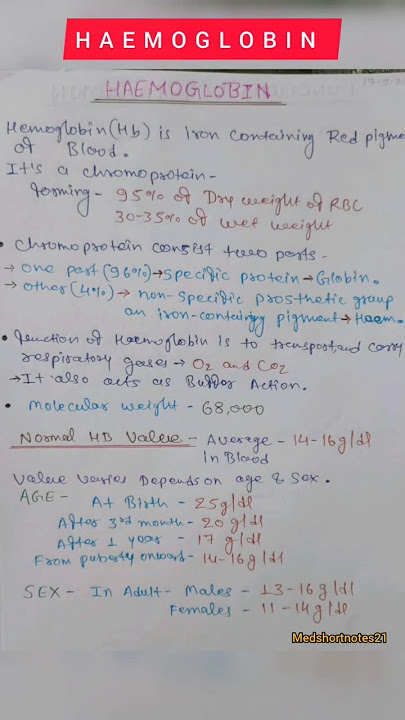 HAEMOGLOBIN
HAEMOGLOBIN
Hemoglobin (Hb) is Iron containing Red pigme
of Blood.
It's a chromoprotein -
forming - 95% of Dry weight of RBC
30-35% of wet weight
• Chromoprotein consist two parts -
→ one part (96%) → specific protein → Globin.
→ other (4%) → non-specific prosthetic group
an iron-containing pigment → Haem.
• function of Haemoglobin is to transport and carry
respiratory gases → O2 and CO2
→ It also acts as Buffer Action.
• Molecular weight - 68,000
Normal HB Value - Average - 14-16g/dl
In Blood
Value varies Depends on age & Sex.
AGE - At Birth - 25g/dl
After 3rd month - 20 g/dl
After 1 year - 17 g/dl
From puberty onward - 14-16 g/dl
SEX - In Adult - Males - 13-16 g/dl
Females - 11-14g/dl
Medshortnotes21